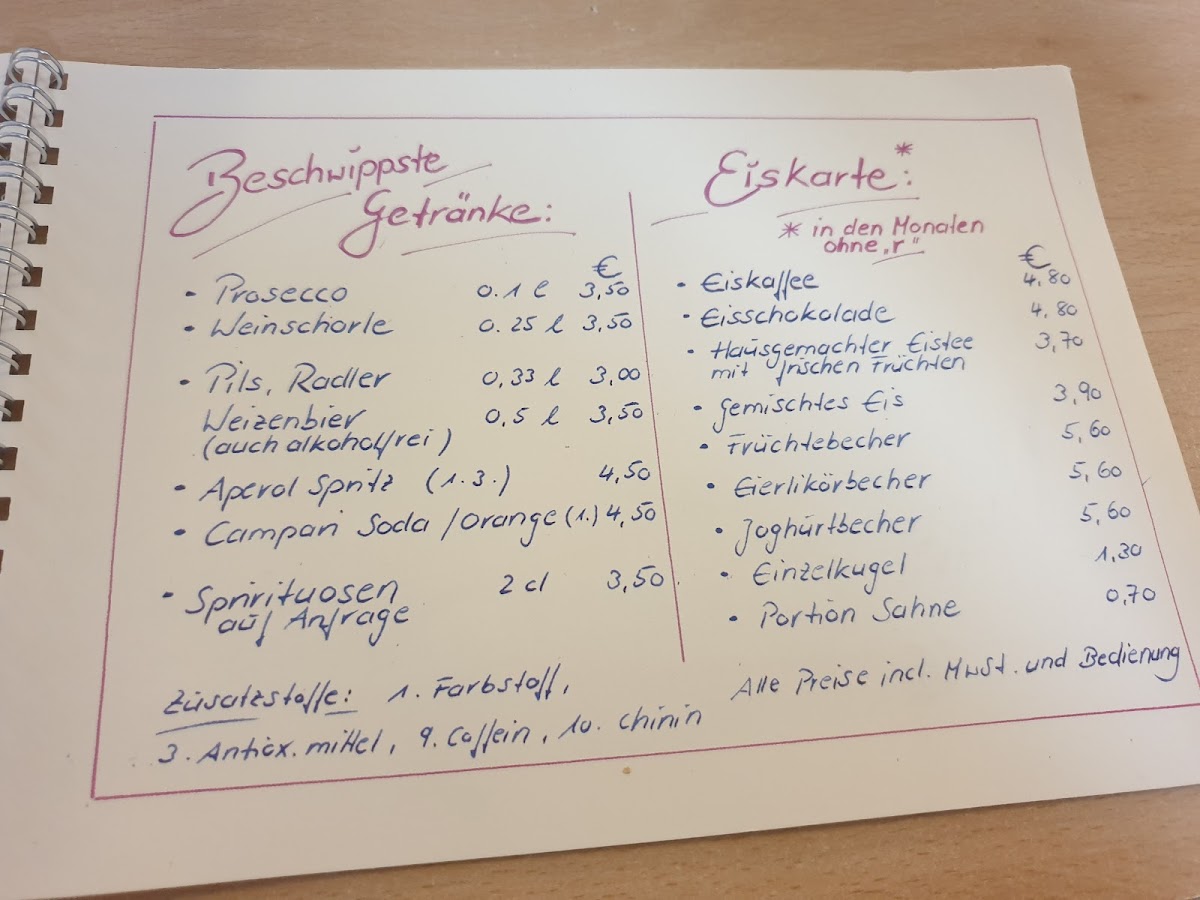 Beschwippste
Getränke:
€
• Prosecco 0.1 l 3,50
• Weinschorle 0.25 l 3,50
• Pils, Radler 0,33 l 3,00
Weizenbier 0,5 l 3,50
(auch alkoholfrei)
• Aperol Spritz (1.3.) 4,50
• Campari Soda /Orange (1.) 4,50
• Spirituosen 2 cl 3,50
auf Anfrage
Eiskarte*:
* in den Monaten
ohne „r"
€
• Eiskaffee 4,80
• Eisschokolade 4,80
• Hausgemachter Eistee 3,70
mit frischen Früchten
• gemischtes Eis 3,90
• Früchtebecher 5,60
• Eierlikörbecher 5,60
• Joghurtbecher 5,60
• Einzelkugel 1,30
• Portion Sahne 0,70
Zusatzstoffe: 1. Farbstoff,
3. Antiox. mittel, 9. Coffein, 10. Chinin
Alle Preise incl. MwSt. und Bedienung